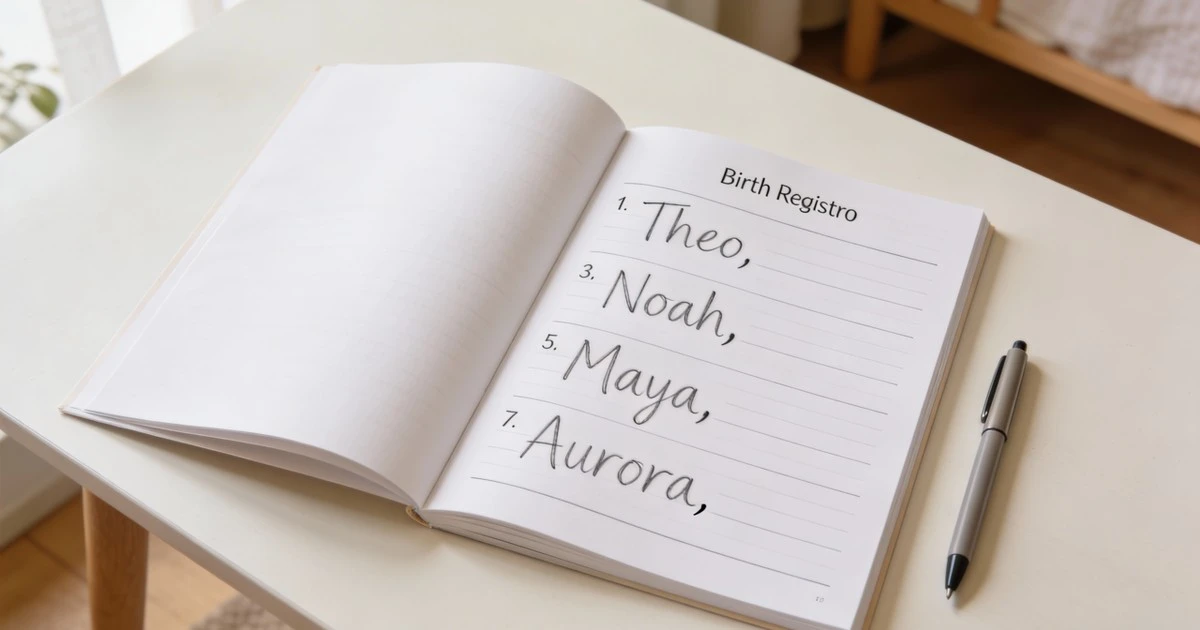 Birth Registro
1. Theo,
3. Noah,
5. Maya,
7. Aurora,